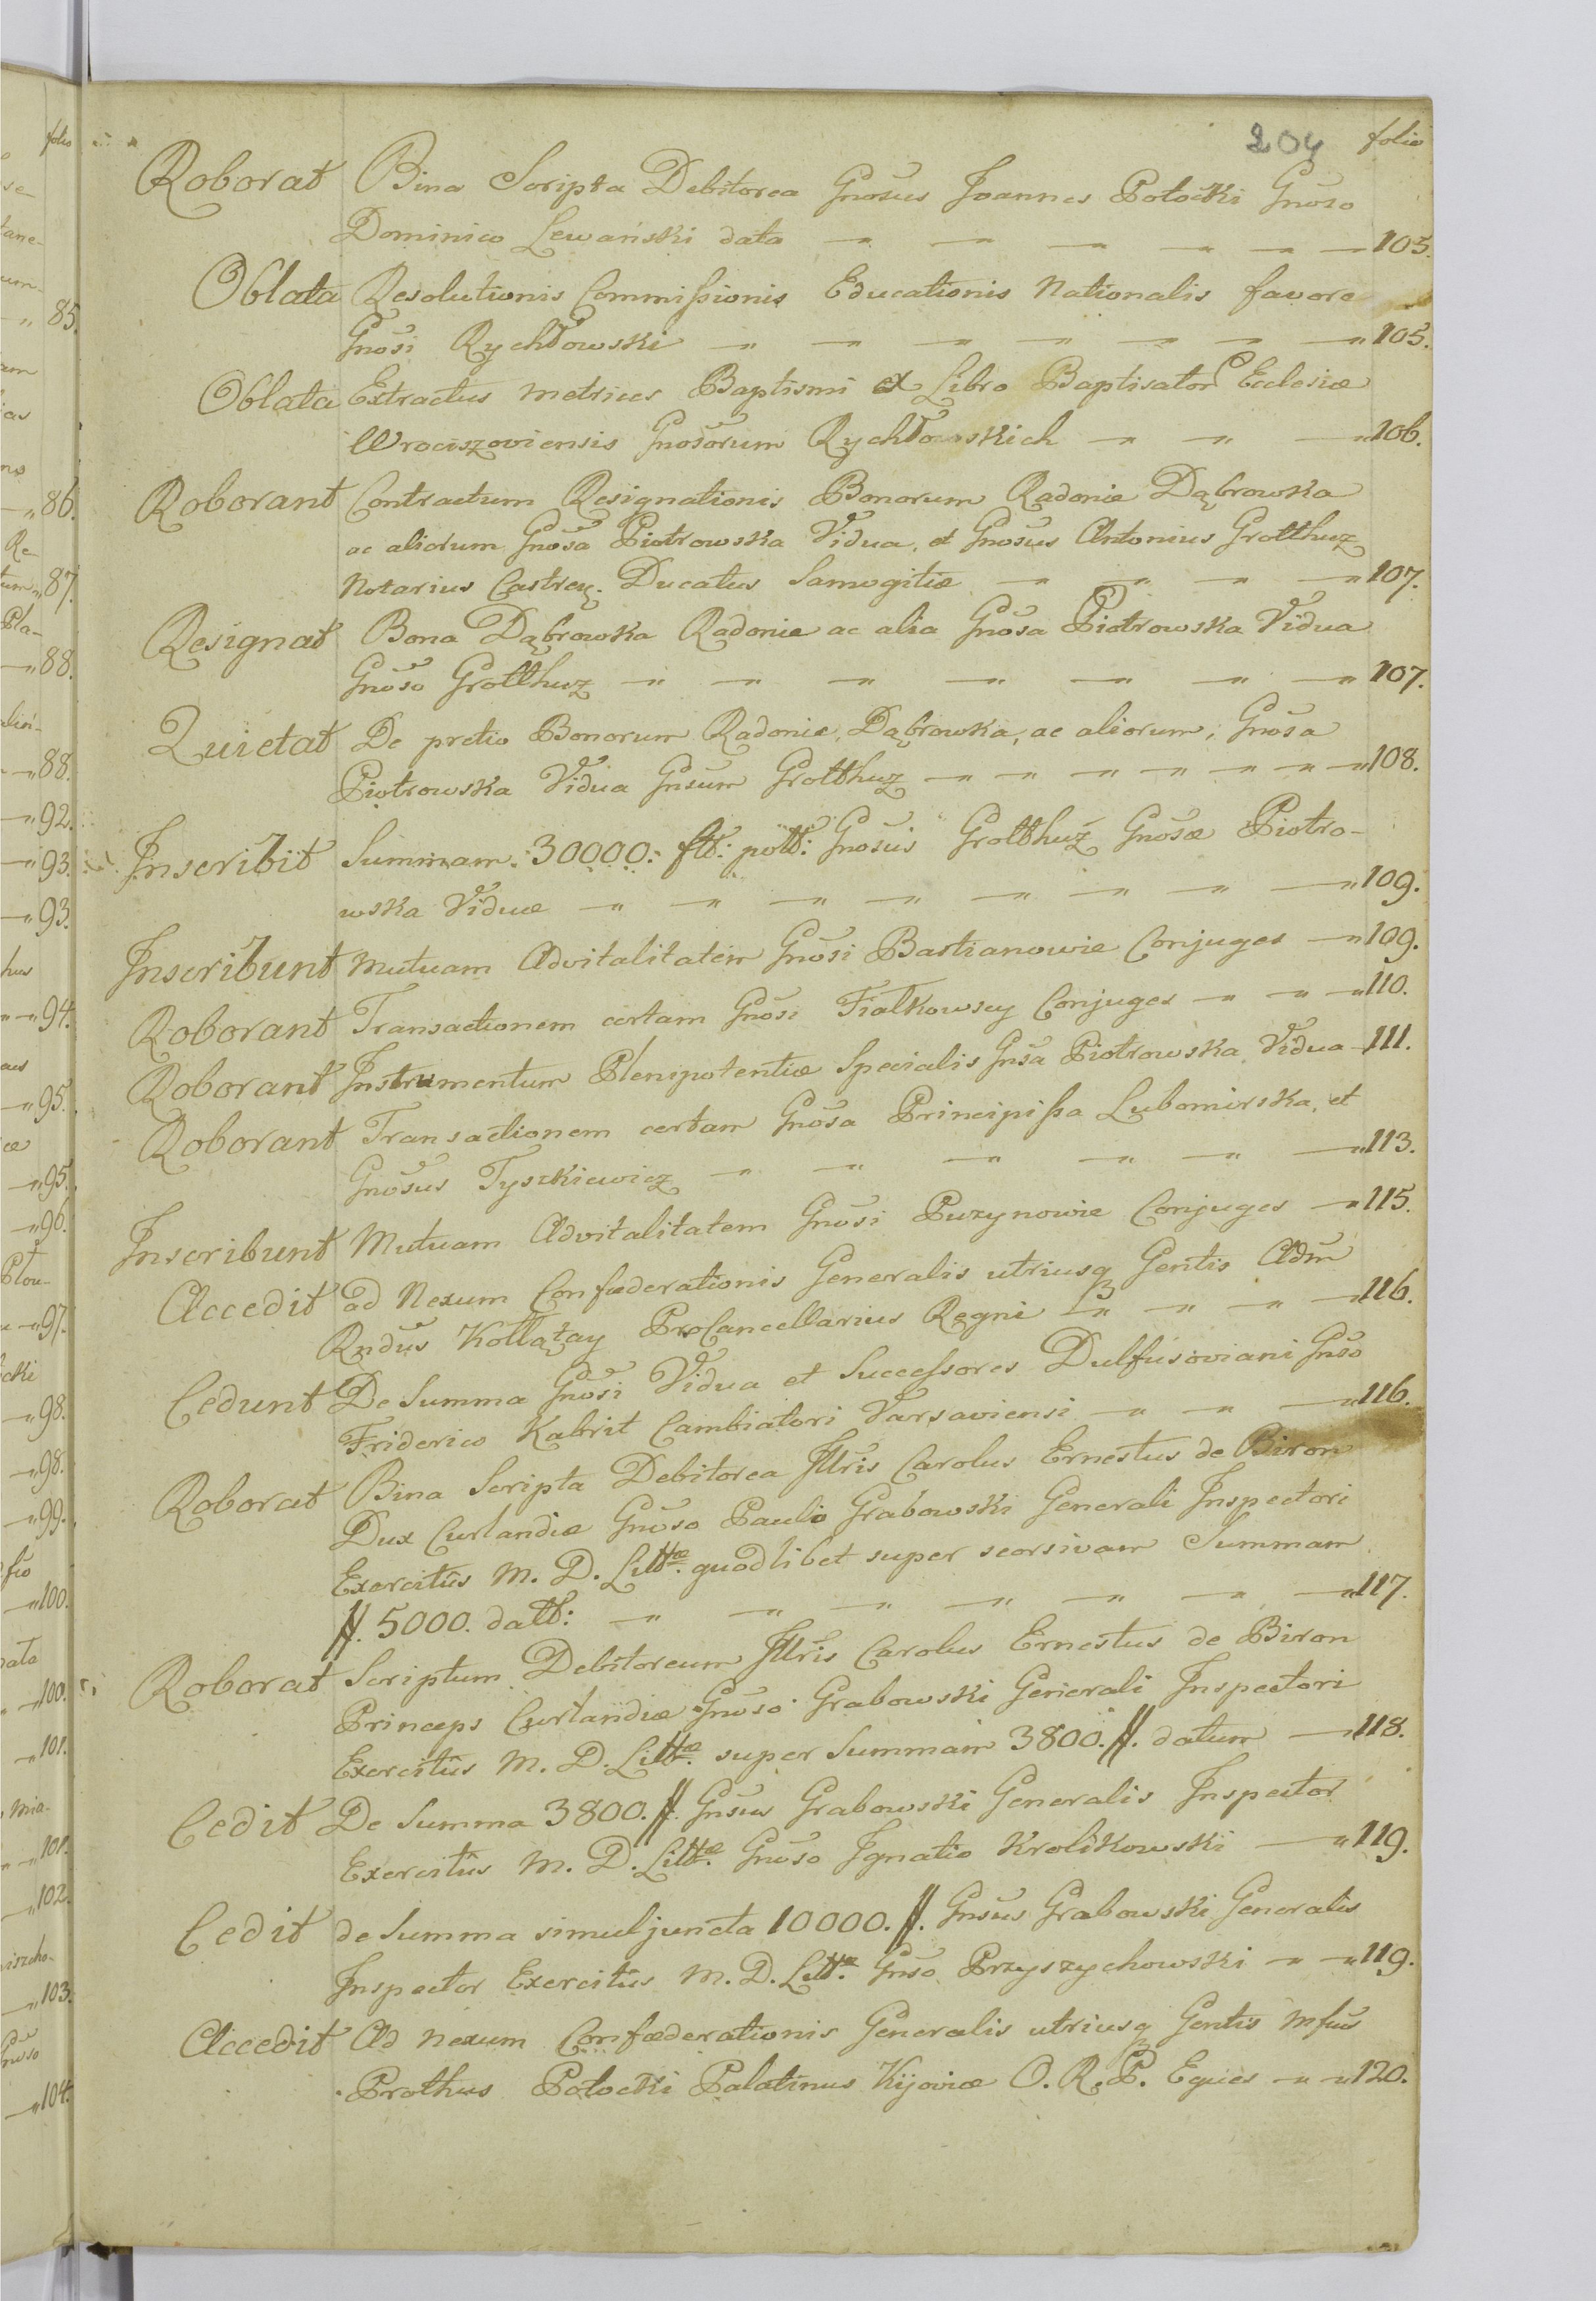 204 folio
Roborat Bina Scripta Debitorea Gnosus Joannes Potocki Gnoso
Dominico Lewański data 105.
Oblata Resolutionis Commissionis Educationis Nationalis favore
Gnosi Rychłowski 105.
Oblata Extractus Metrices Baptismi ex Libro Baptisator Ecclesiæ
Wrociszoviensis Gnosorum Rychłowskich 106.
Roborant Contractum Resignationis Bonorum Radonie Dąbrowka
ac aliorum Gnosa Piotrowska Vidua, et Gnosus Antonius Grotthuz
Notarius Castren. Ducatus Samogitiæ 107.
Resignat Bona Dąbrowka Radonie ac alia Gnosa Piotrowska Vidua
Gnoso Grotthuz 107.
Quietat De pretio Bonorum Radonie, Dąbrowka, ac aliorum, Gnosa
Piotrowska Vidua Gnsum Grotthuz 108.
Inscribit Summam 30000. flł: poll: Gnosus Grotthuz Gnosæ Piotro-
wska Viduæ 109.
Inscribunt Mutuam Advitalitatem Gnosi Bastianowie Conjuges 109.
Roborant Transactionem certam Gnosi Fialkowscy Conjuges 110.
Roborant Instrumentum Plenipotentiæ Specialis Gnsa Piotrowska Vidua 111.
Roborant Transactionem certam Gnosa Principissa Lubomirska, et
Gnosus Tyszkiewicz 113.
Inscribunt Mutuam Advitalitatem Gnosi Puzynowie Conjuges 115.
Accedit ad Nexum Confæderationis Generalis utriusq Gentis Adm
Rndus Kołłątay ProCancellarius Regni 116.
Cedunt De Summa Gnosi Vidua et Successores Dulfusoviani Gnso
Friderico Kabrit Cambiatori Varsaviensi 116.
Roborat Bina Scripta Debitorea Illris Carolus Ernestus de Biron
Dux Curlandiæ Gnoso Paulo Grabowski Generali Inspectori
Exercitûs M. D. Littæ. quodlibet super seorsivam Summam
#. 5000. datt: 117.
Roborat Scriptum Debitoreum Illris Carolus Ernestus de Biron
Princeps Curlandiæ Gnoso Grabowski Generali Inspectori
Exercitûs M. D. Littæ. super Summam 3800. #. datum 118.
Cedit De Summa 3800. #. Gnsus Grabowski Generalis Inspector
Exercitûs M. D. Littæ. Gnoso Ignatio Krolikowski 119.
Cedit de Summa simul juncta 10000. #. Gnsus Grabowski Generalis
Inspector Exercitûs M. D. Littæ. Gnso Przyszychowski 119.
Accedit Ad Nexum Confæderationis Generalis utriusq Gentis Mfus
Prothus Potocki Palatinus Kijoviæ O. R. P. Eques 120.